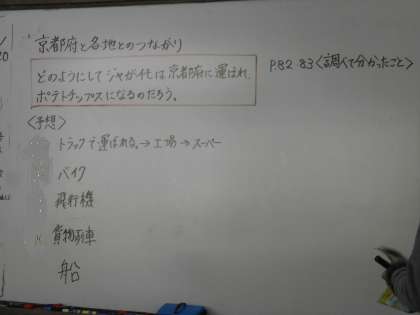 京都府と各地とのつながり
どのようにしてジャガイモは京都府に運ばれ、
ポテトチップスになるのだろう。
P.82 83〈調べて分かったこと〉
〈予想〉
トラックで運ばれる。→工場→スーパー
バイク
飛行機
貨物列車
船